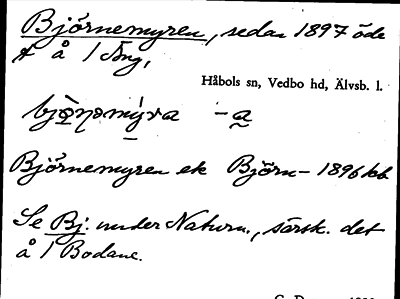 Björnemyren, sedan 1897 öde
t å 1 Äng,
Håbols sn, Vedbo hd, Älvsb. l.
Björnemyren ek Björn- 1896 kb
Se Bj. under Naturn., särsk. det
å 1 Bodane.